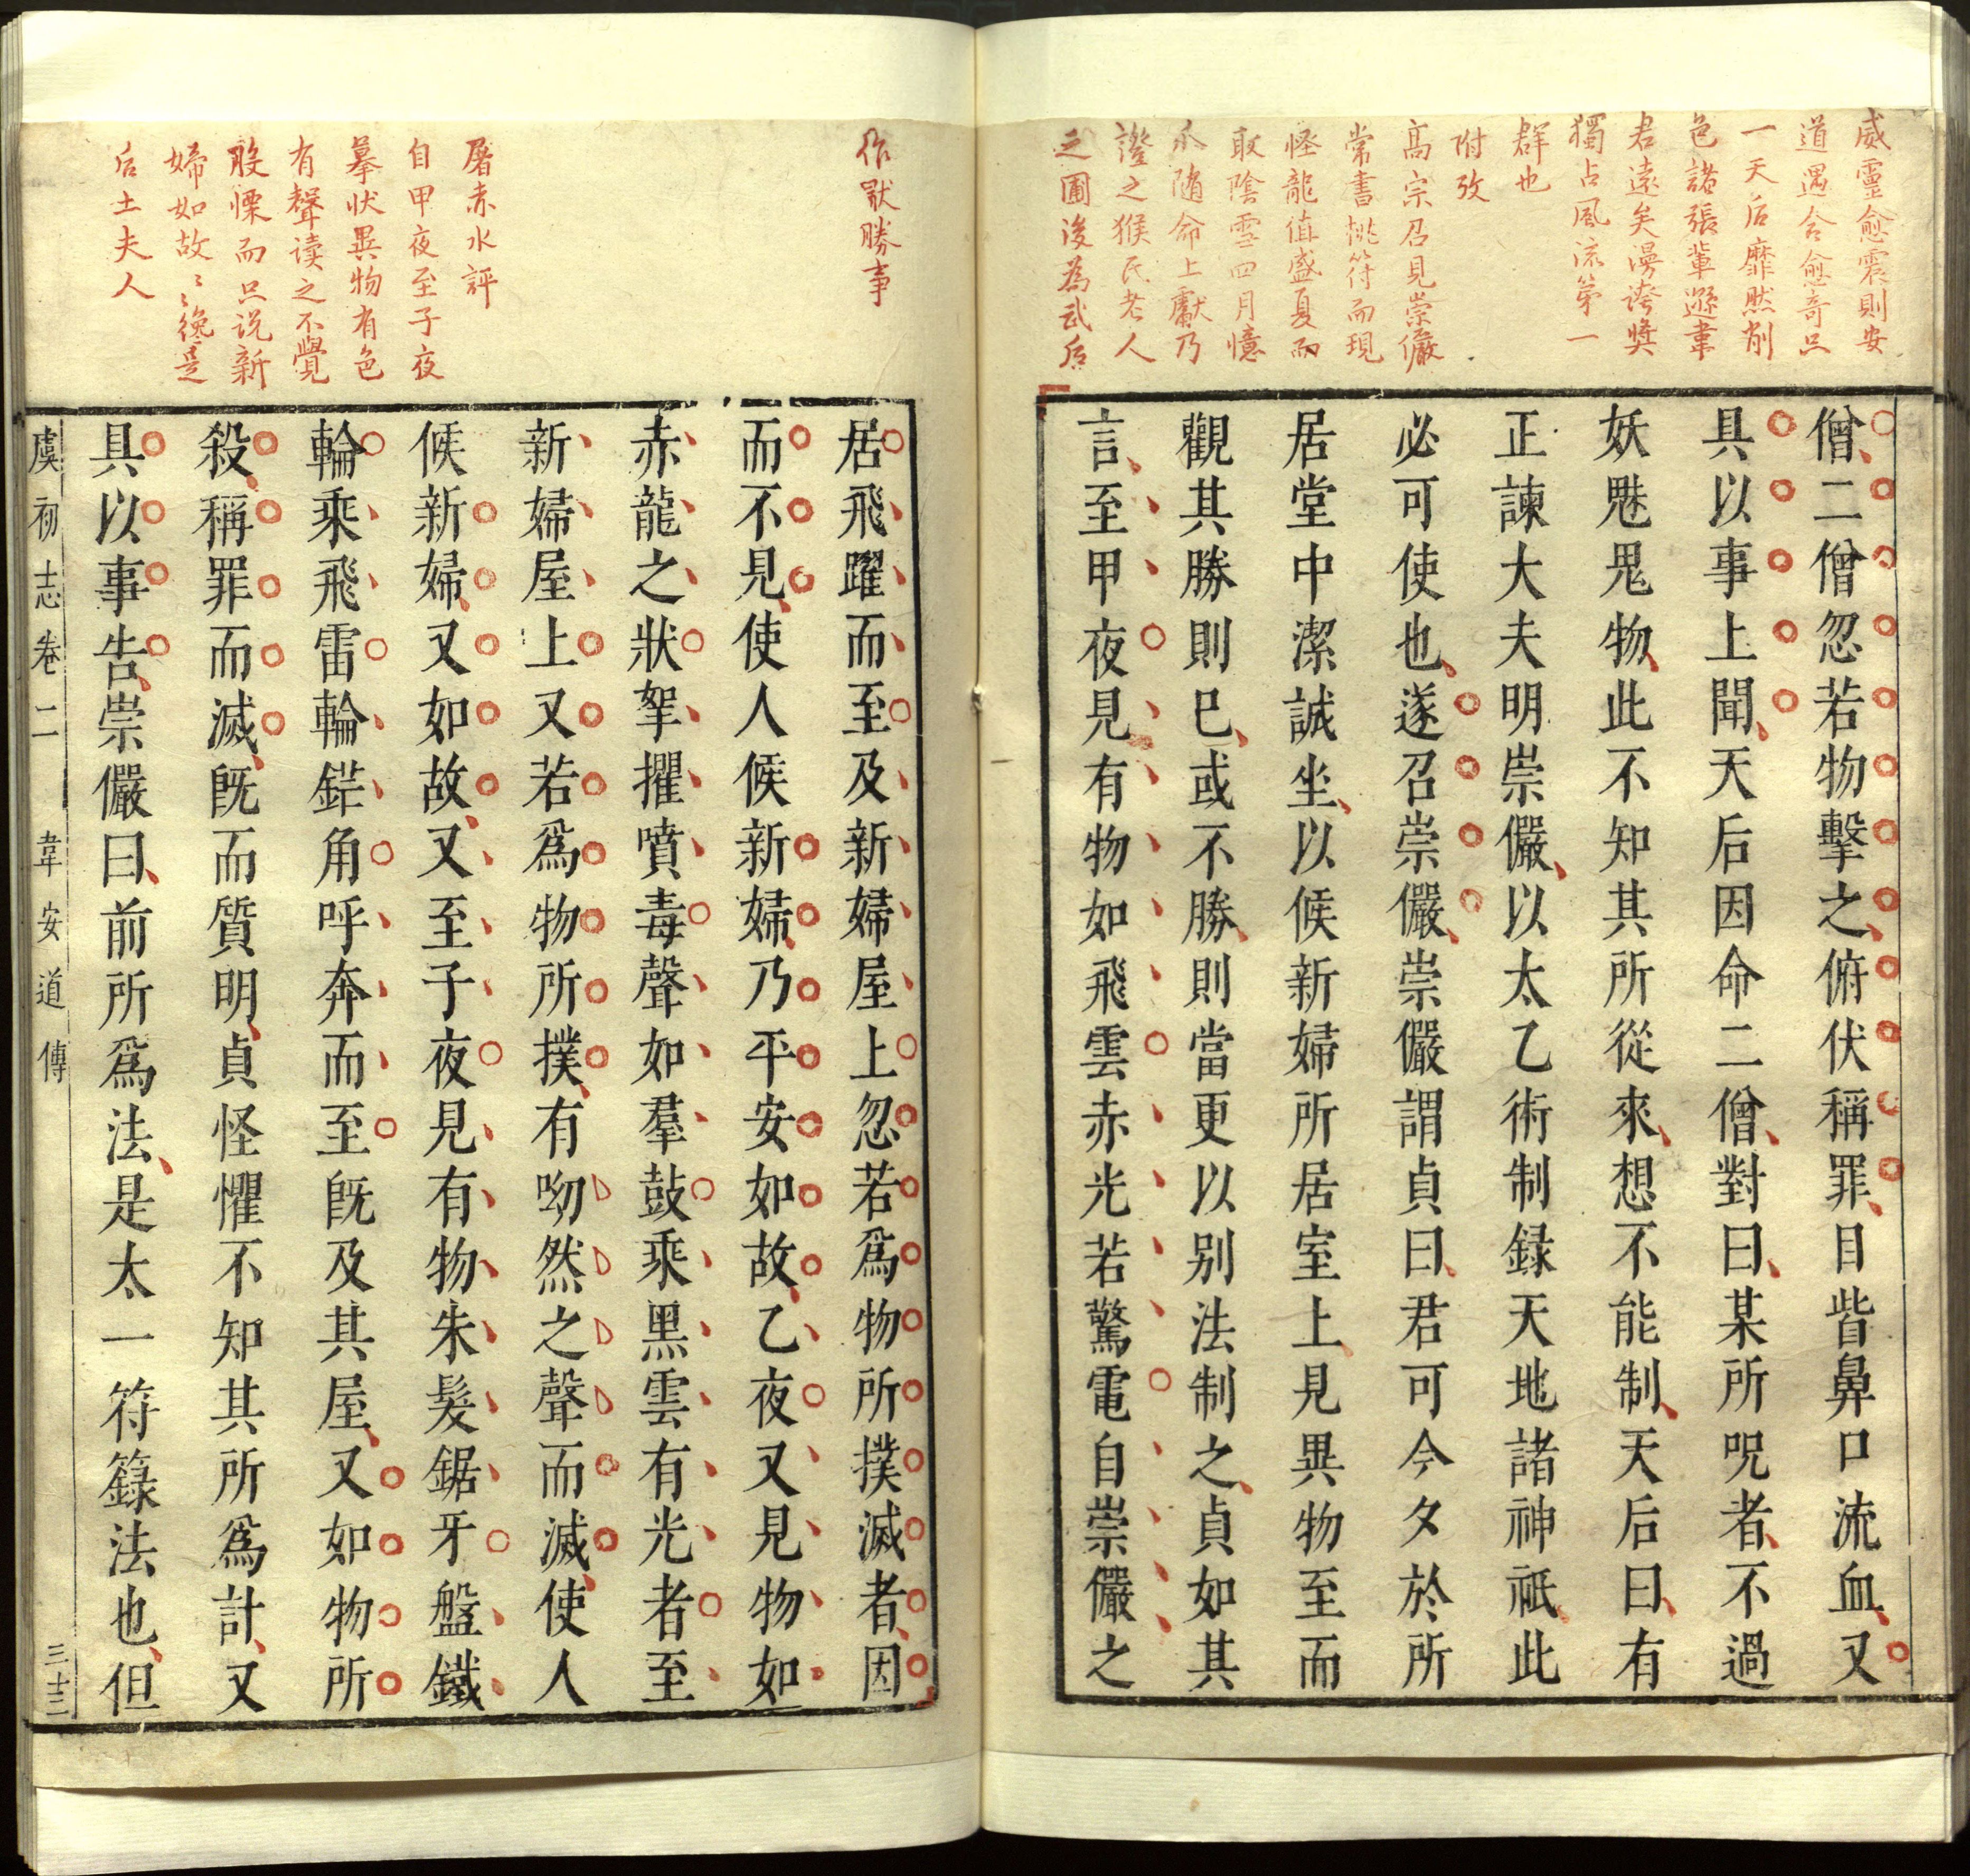 威靈愈震則安
道遇合愈奇只
一天后靡然削
色諸張輩遜韋
君遠矣漫誇獎
獨占風流第一
群也
附攷
高宗召見崇儼
常書桃符而現
怪龍值盛夏而
取陰雪四月憶
瓜隨命上獻乃
證之猴氏老人
之圃後為武后
僧二僧忽若物擊之俯伏稱罪目眥鼻口流血又
具以事上聞天后因命二僧對曰某所呪者不過
妖魅鬼物此不知其所從來想不能制天后曰有
正諫大夫明崇儼以太乙術制録天地諸神祇此
必可使也遂召崇儼崇儼謂貞曰君可今夕於所
居堂中潔誠坐以候新婦所居室上見異物至而
觀其勝則已或不勝則當更以别法制之貞如其
言至甲夜見有物如飛雲赤光若驚電自崇儼之
作猒勝事
屠赤水評
自甲夜至子夜
摹状異物有色
有聲读之不覺
股慄而只说新
婦如故〻〻纔是
后土夫人
居飛躍而至及新婦屋上忽若爲物所撲滅者因
而不見使人候新婦乃平安如故乙夜又見物如
赤龍之狀拏攫噴毒聲如羣鼓乘黑雲有光者至
新婦屋上又若爲物所撲有呦然之聲而滅使人
候新婦又如故又至子夜見有物朱髮鋸牙盤鐵
輪乘飛雷輪鋩角呼奔而至旣及其屋又如物所
殺稱罪而滅旣而質明貞怪懼不知其所爲計又
具以事告崇儼曰前所爲法是太一符籙法也但
虞初志卷二 韋安道傳 三十三